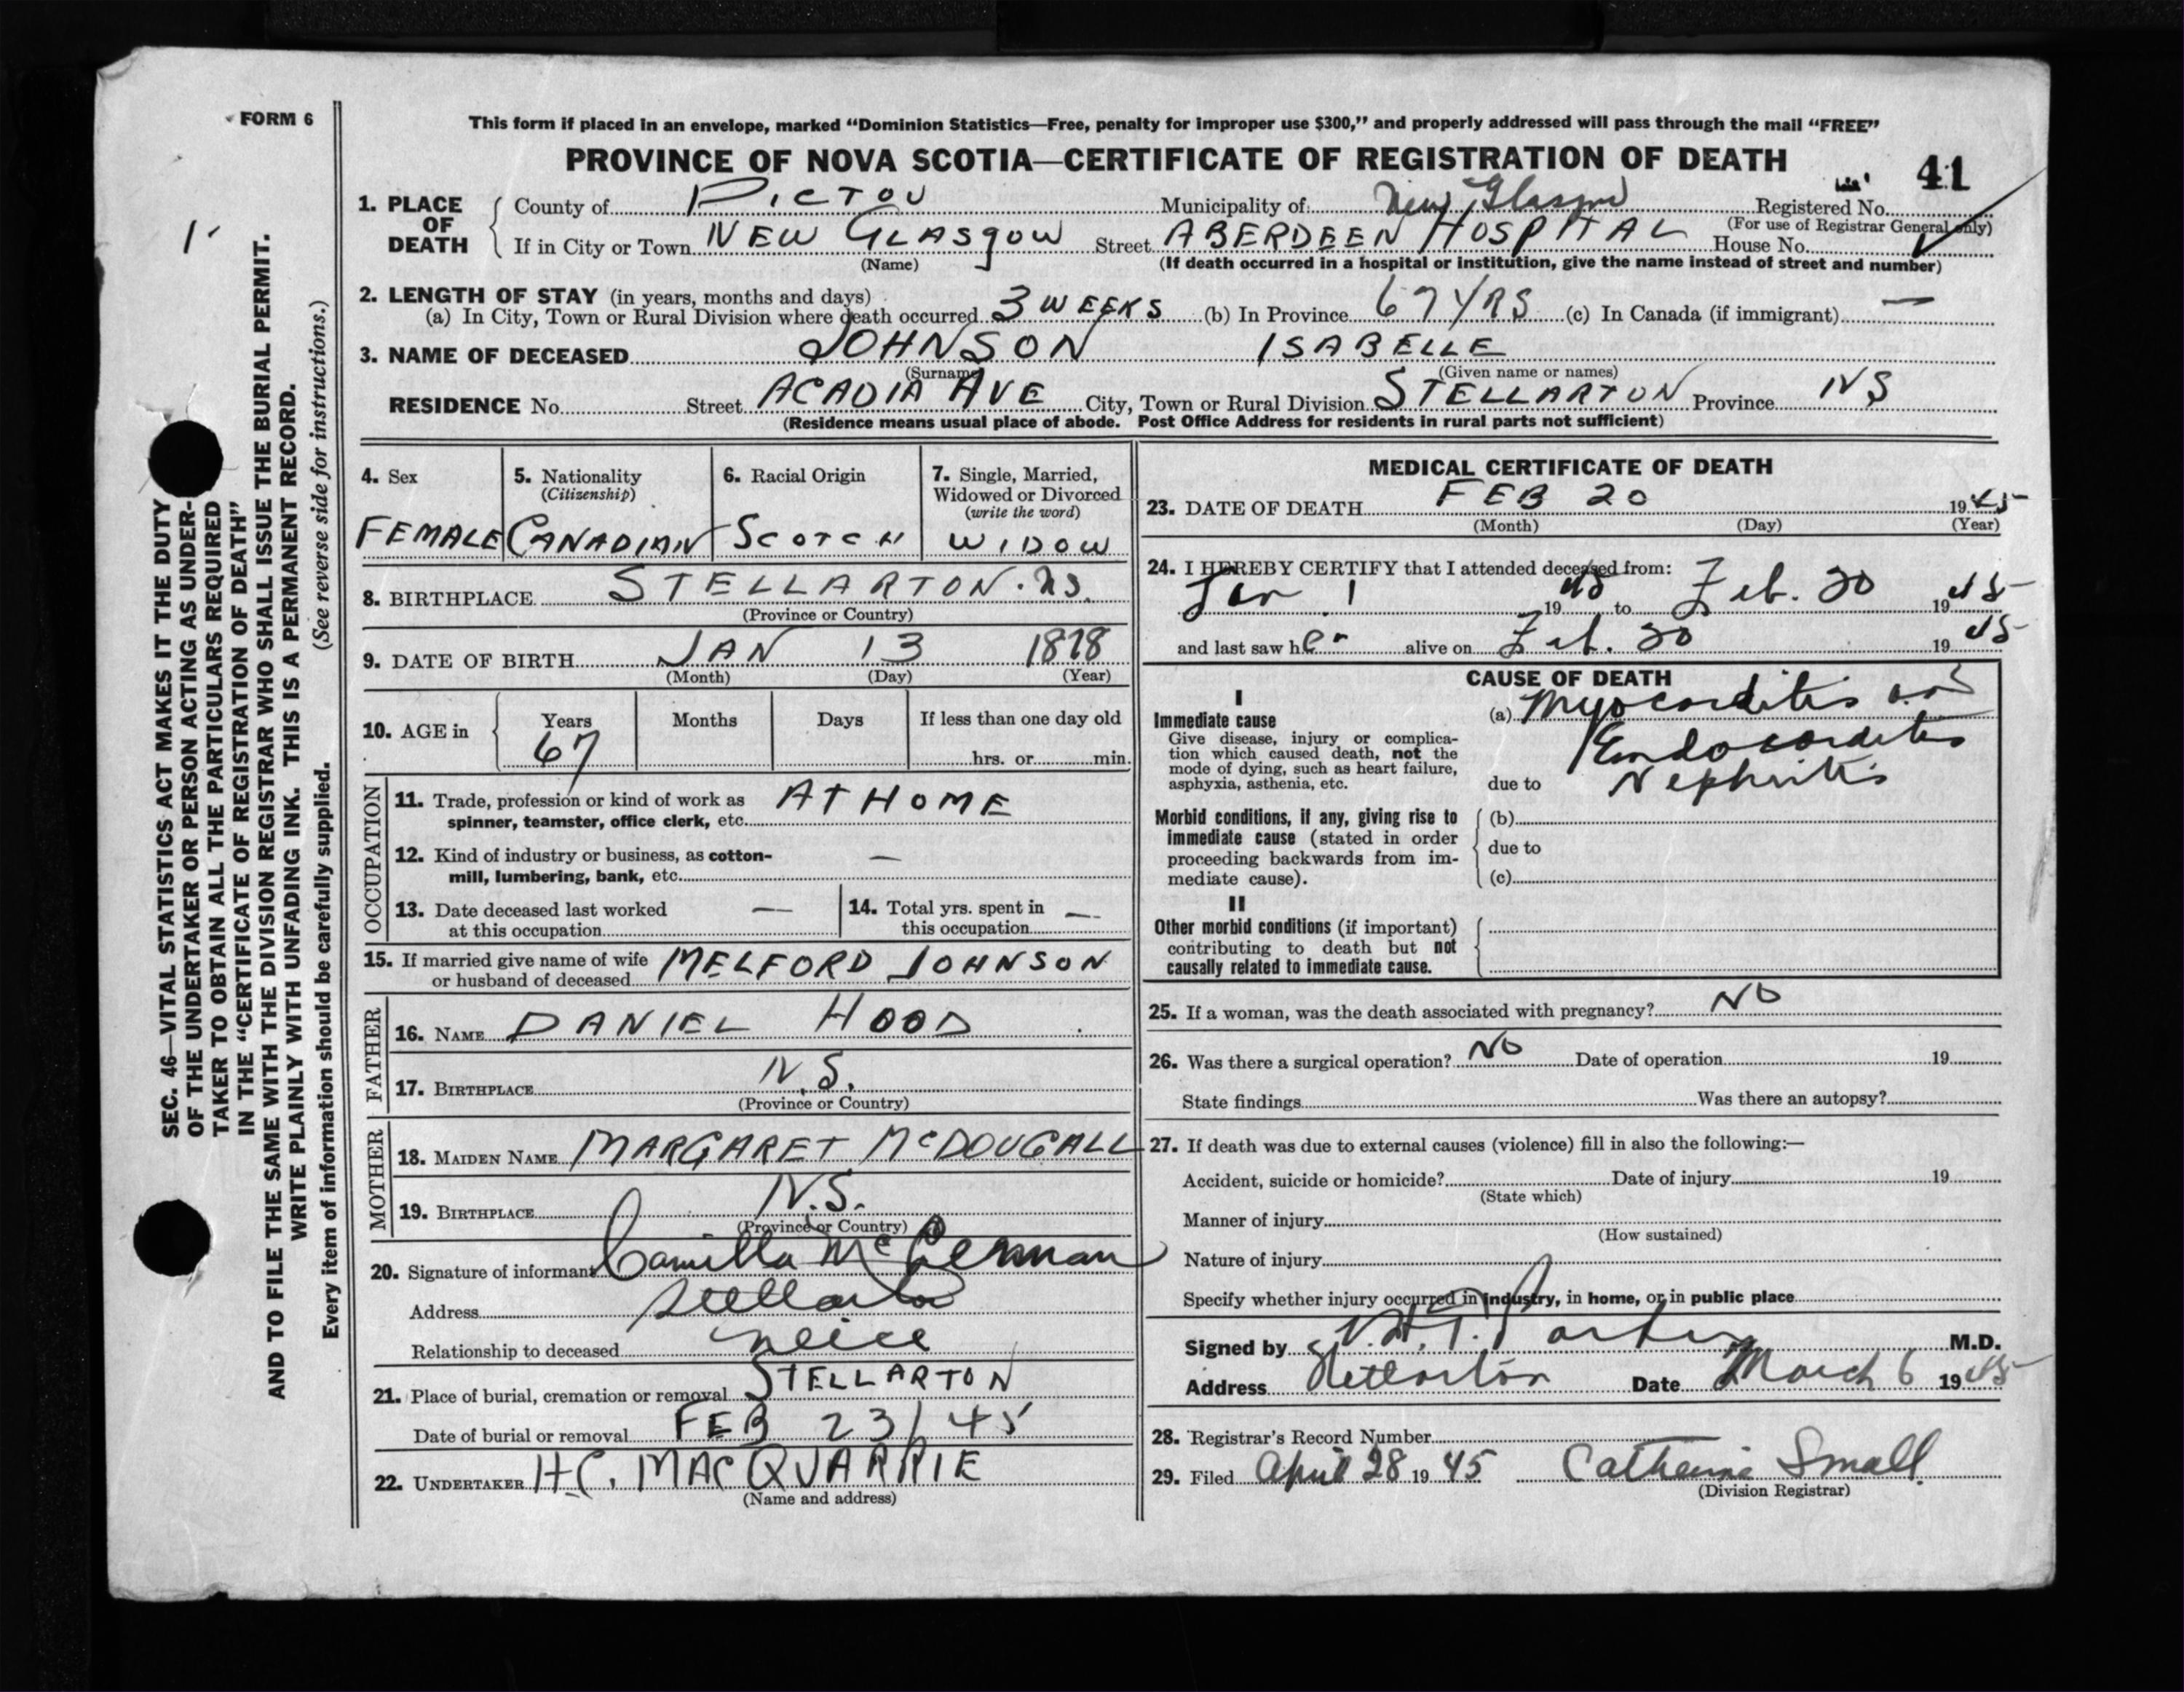 FORM 6
This form if placed in an envelope, marked “Dominion Statistics—Free, penalty for improper use $300,” and properly addressed will pass through the mail “FREE”
PROVINCE OF NOVA SCOTIA—CERTIFICATE OF REGISTRATION OF DEATH
41
1. PLACE OF DEATH
County of PICTOU Municipality of: New Glasgow Registered No.
(For use of Registrar General only)
If in City or Town NEW GLASGOW Street ABERDEEN HOSPITAL House No.
(Name) (If death occurred in a hospital or institution, give the name instead of street and number)
2. LENGTH OF STAY (in years, months and days)
(a) In City, Town or Rural Division where death occurred 3 WEEKS (b) In Province 67 YRS (c) In Canada (if immigrant) —
3. NAME OF DECEASED JOHNSON ISABELLE
(Surname) (Given name or names)
RESIDENCE No. Street ACADIA AVE City, Town or Rural Division STELLARTON Province NS
(Residence means usual place of abode. Post Office Address for residents in rural parts not sufficient)
4. Sex FEMALE
5. Nationality (Citizenship) CANADIAN
6. Racial Origin SCOTCH
7. Single, Married, Widowed or Divorced (write the word) WIDOW
8. BIRTHPLACE STELLARTON. NS.
(Province or Country)
9. DATE OF BIRTH JAN 13 1878
(Month) (Day) (Year)
10. AGE in Years 67 Months Days If less than one day old
hrs. or min.
OCCUPATION
11. Trade, profession or kind of work as spinner, teamster, office clerk, etc. AT HOME
12. Kind of industry or business, as cotton-mill, lumbering, bank, etc. —
13. Date deceased last worked at this occupation —
14. Total yrs. spent in this occupation —
15. If married give name of wife or husband of deceased MELFORD JOHNSON
FATHER
16. NAME DANIEL HOOD
17. BIRTHPLACE N.S.
(Province or Country)
MOTHER
18. MAIDEN NAME MARGARET McDOUGALL
19. BIRTHPLACE N.S.
(Province or Country)
20. Signature of informant Camilla Mc
Address Stellarton
Relationship to deceased neice
21. Place of burial, cremation or removal STELLARTON
Date of burial or removal FEB 23/45
22. UNDERTAKER H.C. MACQUARRIE
(Name and address)
MEDICAL CERTIFICATE OF DEATH
23. DATE OF DEATH FEB 20 1945
(Month) (Day) (Year)
24. I HEREBY CERTIFY that I attended deceased from:
Jan 1 1945 to Feb. 20 1945
and last saw her alive on Feb. 20 1945
CAUSE OF DEATH
I
Immediate cause
Give disease, injury or complication which caused death, not the mode of dying, such as heart failure, asphyxia, asthenia, etc.
(a) Myocarditis and
Endocarditis
due to Nephritis
Morbid conditions, if any, giving rise to immediate cause (stated in order proceeding backwards from immediate cause).
(b)
due to
(c)
II
Other morbid conditions (if important) contributing to death but not causally related to immediate cause.
25. If a woman, was the death associated with pregnancy? NO
26. Was there a surgical operation? NO Date of operation 19
State findings Was there an autopsy?
27. If death was due to external causes (violence) fill in also the following:—
Accident, suicide or homicide? Date of injury 19
(State which)
Manner of injury
(How sustained)
Nature of injury
Specify whether injury occurred in industry, in home, or in public place
Signed by M.D.
Address Stellarton Date March 6 1945
28. Registrar's Record Number
29. Filed April 28 1945 Catherine Small
(Division Registrar)
SEC. 46—VITAL STATISTICS ACT MAKES IT THE DUTY
OF THE UNDERTAKER OR PERSON ACTING AS UNDER-
TAKER TO OBTAIN ALL THE PARTICULARS REQUIRED
IN THE “CERTIFICATE OF REGISTRATION OF DEATH”
AND TO FILE THE SAME WITH THE DIVISION REGISTRAR WHO SHALL ISSUE THE BURIAL PERMIT.
WRITE PLAINLY WITH UNFADING INK. THIS IS A PERMANENT RECORD.
Every item of information should be carefully supplied. (See reverse side for instructions.)